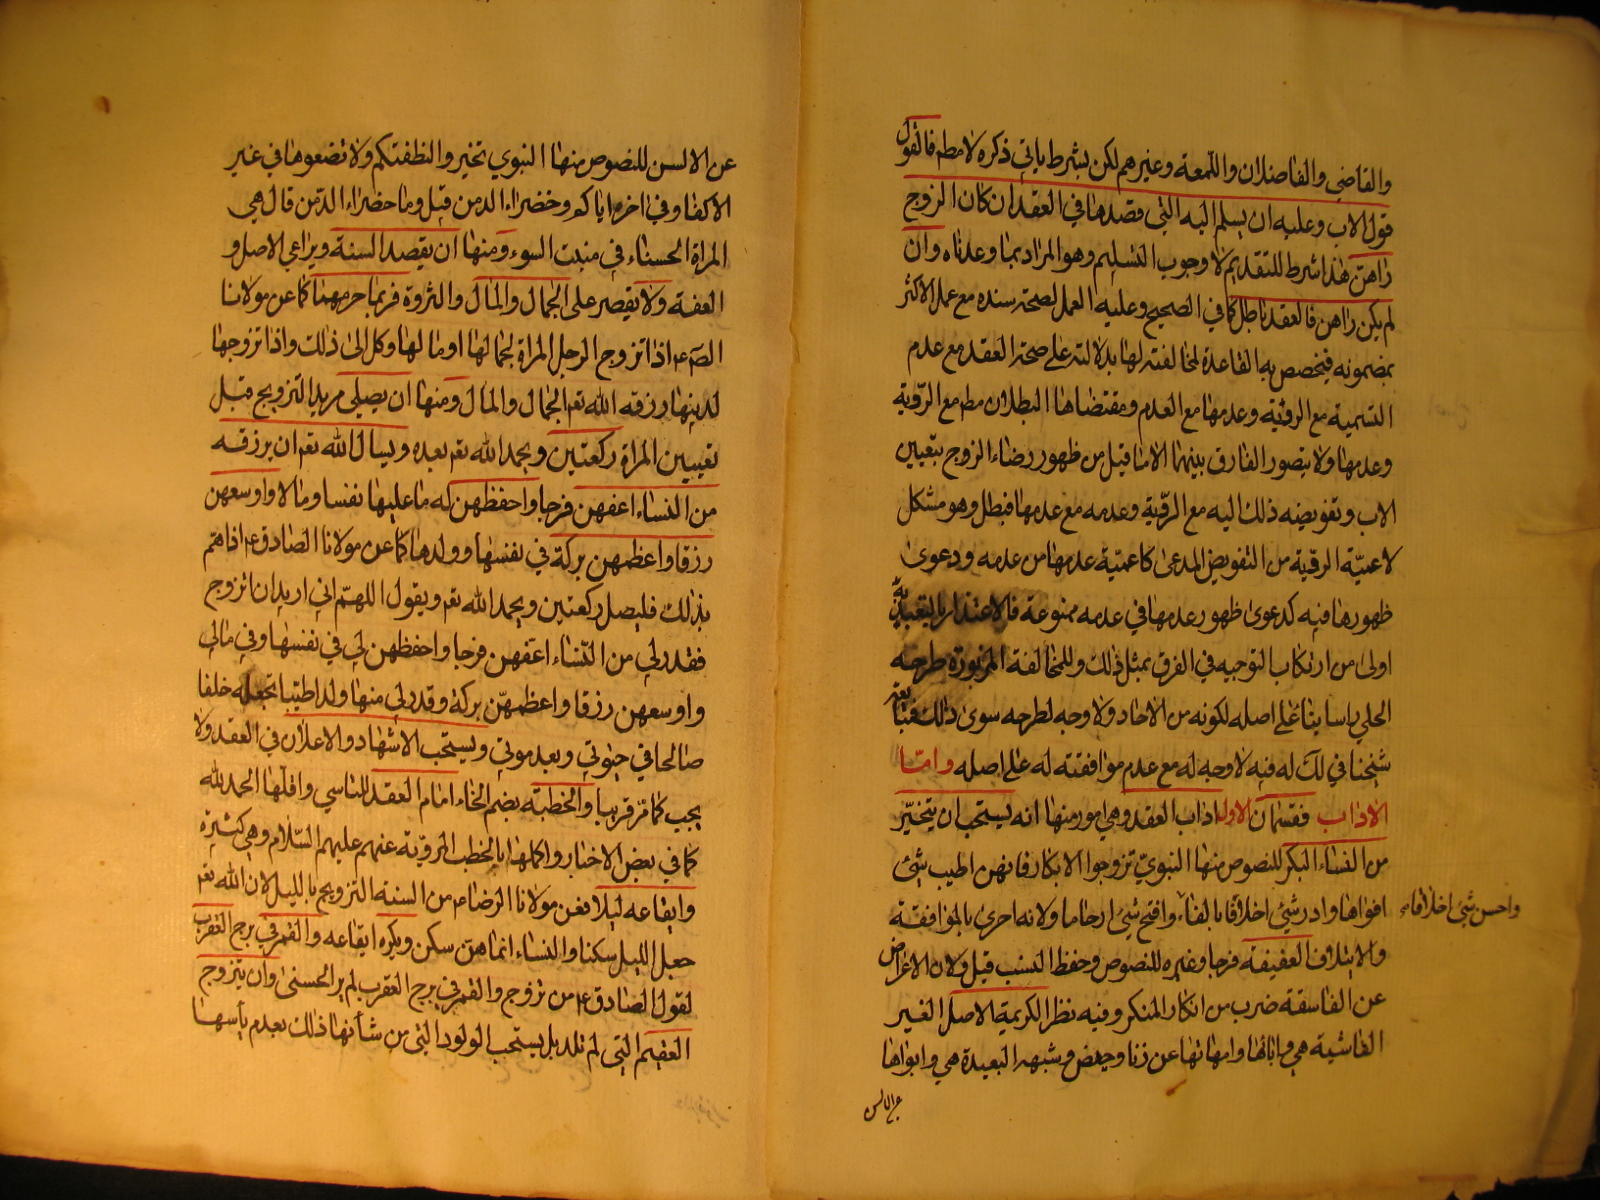 والقاضي والفاضلان واللمعة وغيرهم لكن بشرط ياتي ذكره لا مطم فالقول
قول الاب وعليه ان يسلم اليه التي قصدها في العقد ان كان الزوج
راهن هذا شرط للتقديم لا وجوب التسليم وهو المراد بما وعدناه وان
لم يكن راهن فالعقد باطل كما في الصحيح وعليه العمل لصحة سنده مع عمل الاكثر
بمضمونه فيخصص به القاعدة لمخالفته لها بدلالته على صحة العقد مع عدم
التسمية مع الرؤية وعدمها مع العدم ومقتضاها البطلان مطم مع الرؤية
وعدمها ولا يتصور الفارق بينهما الا ما قيل من ظهور رضاء الزوج بتعيين
الاب وتفويضه ذلك اليه مع الرؤية وعدمه مع عدمها فبطل وهو مشكل
لاعمية الرؤية من التفويض المدعى كاعمية عدمها من عدمه ودعوى
ظهورها فيه كدعوى ظهور عدمها في عدمه ممنوعة فالاعتذار بالتعبدية
اولى من ارتكاب التوجيه في الفرق بمثل ذلك وللمخالفة المزبورة طرحه
الحلي راسا بناء على اصله لكونه من الاحاد ولا وجه لطرحه سوى ذلك
شيخنا في لك له فيه لا وجه له مع عدم موافقته له على اصله واما
الاداب فقسمان الاول اداب العقد وهي امور منها انه يستحب ان يتخير
من النساء البكر للنصوص منها النبوي تزوجوا الابكار فانهن اطيب شئ
افواها وادر شئ اخلافا بالفاء وافتح شئ ارحاما ولانه احرى بالموافقة
واحسن شئ اخلاقا
والايتلاف العفيفة فرجا وغيره للنصوص وحفظ النسب قيل ولان الاعراض
عن الفاسقة ضرب من انكار المنكر وفيه نظر الكريمة الاصل الغير
الناشية هي وابائها وامهاتها عن زنا وحيض وشبهه البعيدة هي وابواها
عن الالسن
عن الالسن للنصوص منها النبوي تخيروا لنطفتكم ولا تضعوها في غير
الاكفاء وفي اخر اياكم وخضراء الدمن قيل وما خضراء الدمن قال هي
المراة الحسناء في منبت السوء ومنها ان يقصد السنة ويراعي الاصل و
العفة ولا يقصر على الجمال والمال والثروة فربما حرمهما كما عن مولانا
الصم ع اذا تزوج الرجل المراة لجمالها او مالها وكل الى ذلك واذا تزوجها
لدينها رزقه الله تعم الجمال والمال ومنها ان يصلي مريد التزويج قبل
تعيين المراة ركعتين ويحمد الله تعم بعده ويسال الله تعم ان يرزقه
من النساء اعفهن فرجا واحفظهن له ما عليها نفسا ومالا واوسعهن
رزقا واعظمهن بركة في نفسها وولدها كما عن مولانا الصادق ع اذا هم
بذلك فليصل ركعتين ويحمد الله تعم ويقول اللهم اني اريد ان اتزوج
فقدر لي من النساء اعفهن فرجا واحفظهن لي في نفسها وفي مالي
واوسعهن رزقا واعظمهن بركة وقدر لي منها ولدا طيبا تجعله خلفا
صالحا في حيوتي وبعد موتي ويستحب الاشهاد والاعلان في العقد ولا
يجب كما مر قريبا والخطبة بضم الخاء امام العقد للتاسي واقلها الحمد لله
كما في بعض الاخبار واكملها الخطب المروية عنهم عليهم السلام وهي كثيرة
وايقاعه ليلا فعن مولانا الرضا ع من السنة التزويج بالليل لان الله تعم
جعل الليل سكنا والنساء انما هن سكن ويكره ايقاعه والقمر في برج العقرب
لقول الصادق ع من تزوج والقمر في برج العقرب لم ير الحسنى وان يتزوج
العقيم التي لم تلد بل يستحب الولود التي من شأنها ذلك بعدم يأسها